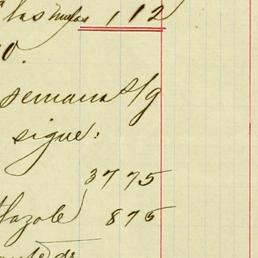 las mulas 112
0.
semana s/g
sigue:
3775
876